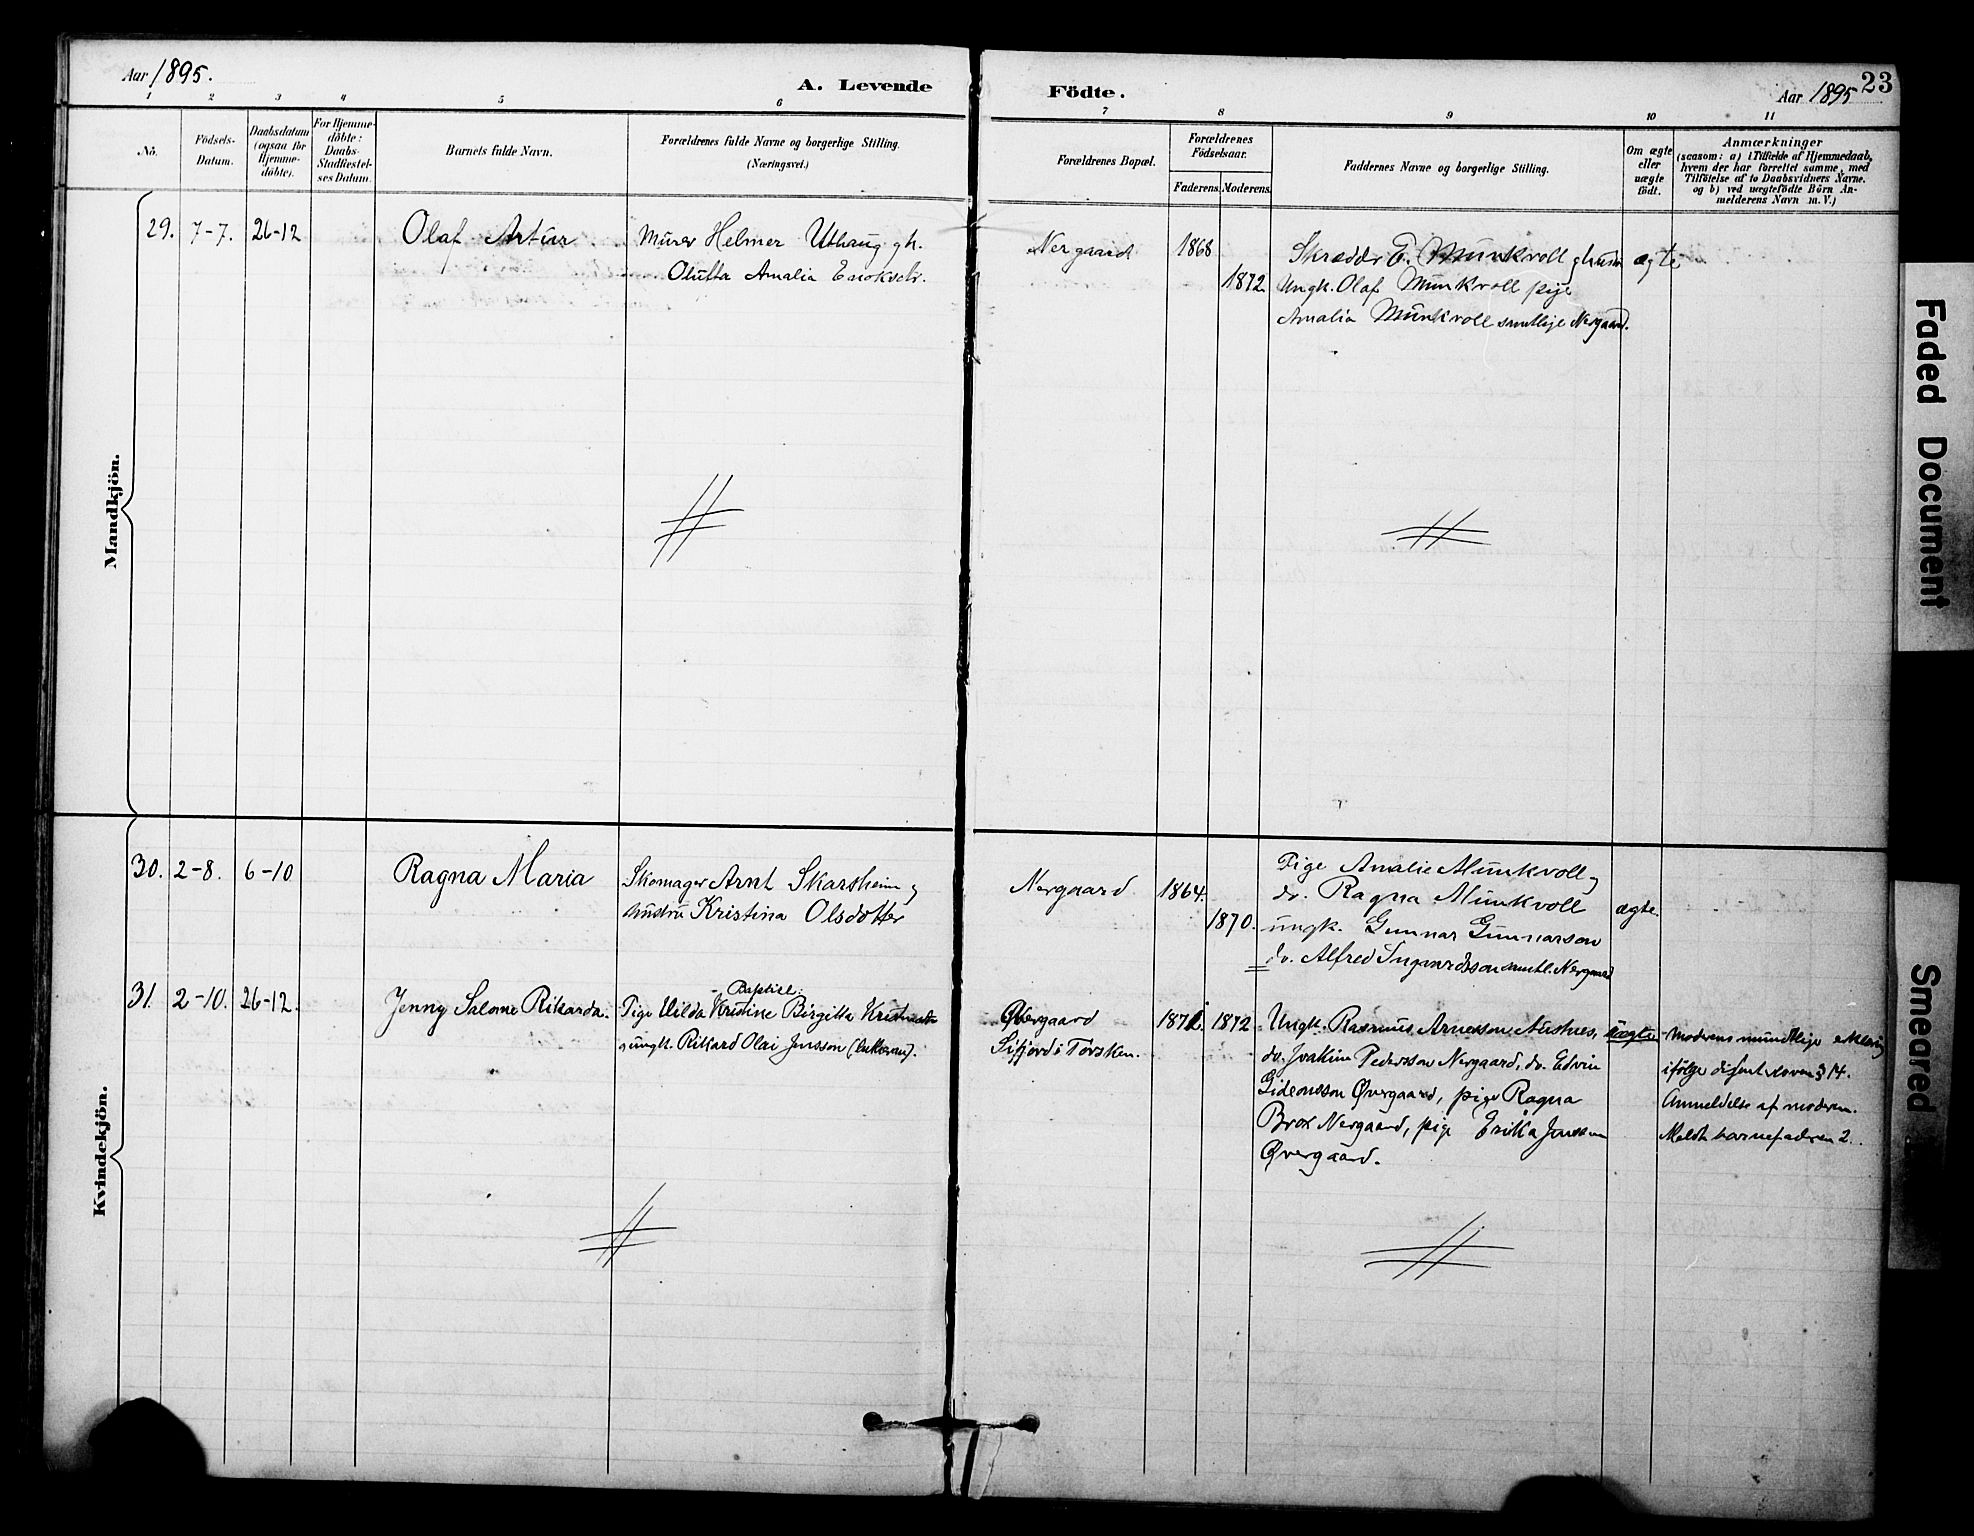 Aar 1895.
A. Levende
Födte.
Aar 1895
23
1 2 3 4 5 6 7 8 9 10 11
No.
Födsels-
Datum.
Daabsdatum
(ogsaa for
Hjemme-
döbte).
For Hjemme-
döbte:
Daabs-
Stadfæstel-
ses Datum.
Barnets fulde Navn.
Forældrenes fulde Navne og borgerlige Stilling.
(Næringsvei.)
Forældrenes Bopæl.
Forældrenes
Födselsaar.
Faderens. Moderens.
Faddernes Navne og borgerlige Stilling.
Om ægte
eller
uægte
födt.
Anmærkninger
(saasom: a) i Tilfælde af Hjemmedaab,
hvem der har forrettet samme, med
Tilföielse af to Daabsvidners Navne.
og b) ved uægtefödte Börn An-
melderens Navn m. V.)
Mandkjön.
29. 7-7. 26-12
Olaf Artur
Murer Helmer Uthaug gh.
Olutta Amalia Enoksdr.
Nergaard
1868
1872
Skrædder E. Munkvoll ghustr
Ungk. Olaf Munkvoll pige
Amalia Munkvoll samtlige Nergaard.
ægte
Kvindekjön.
30. 2-8. 6-10
Ragna Maria
Skomager Arnt Skarsheim g
hustru Kristina Olsdotter
Nergaard
1864.
1870.
Pige Amalie Munkvoll g
do. Ragna Munkvoll
ungk. Gunnar Gunnarson
do. Alfred Ingvardsson samtl. Nergaard
ægte.
31. 2-10. 26-12.
Jenny Salome Rikarda.
Baptist.
Pige Hilda Kristine Birgitta
g ungk. Rikard Olai Jensson (lutheran).
Øvergaard
Sifjord i Torsken.
1871 1872
Ungk. Rasmus Arnesson
do. Joakim Pedersson Nergaard, do. Edvin
Gideonsson Øvergaard, pige Ragna
Brox Nergaard, pige Erika Jensson
Øvergaard.
uægte
Moderens mundtlige erklæring
ifølge disenterloven § 14.
Anmeldelse af moderen.
Meldt barnefaderen 2.
Faded Document
Smeared